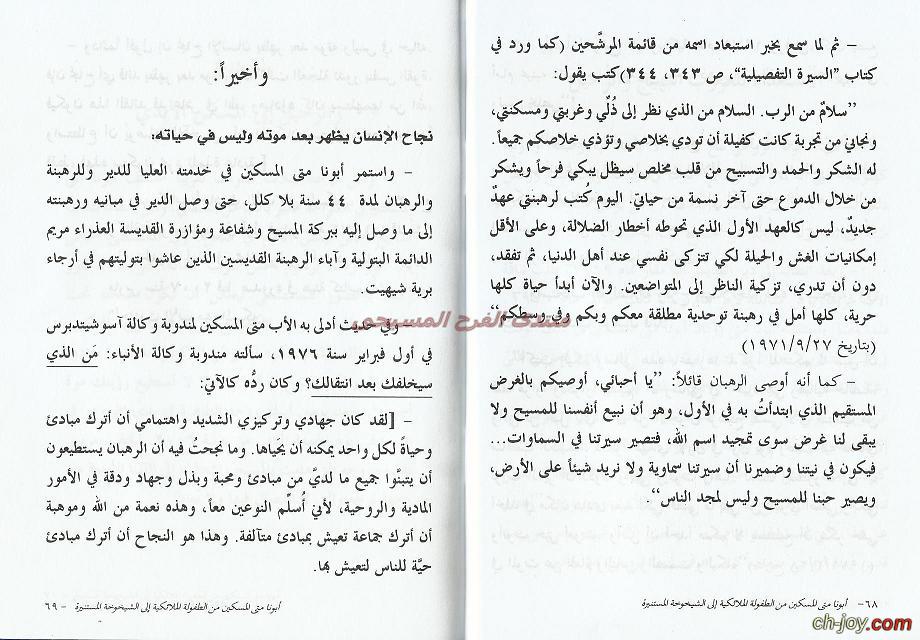 – ثم لما سمع بخبر استبعاد اسمه من قائمة المرشَّحين (كما ورد في
كتاب ”السيرة التفصيلية“، ص ٣٤٣، ٣٤٤)كتب يقول:
”سلامٌ من الرب. السلام من الذي نظر إلى ذُلِّي وغربتي ومسكنتي،
ونجاني من تجربة كانت كفيلة أن تودي بخلاصي وتؤذي خلاصكم جميعاً.
له الشكر والحمد والتسبيح من قلب مخلص سيظل يبكي فرحاً ويشكر
من خلال الدموع حتى آخر نسمة من حياتي. اليوم كُتب لرهبنتي عهدٌ
جديدٌ، ليس كالعهد الأول الذي تحوطه أخطار الضلالة، وعلى الأقل
إمكانيات الغش والحيلة لكي تتزكى نفسي عند أهل الدنيا، ثم تفقد،
دون أن تدري، تزكية الناظر إلى المتواضعين. والآن أبدأ حياة كلها
حرية، كلها أمل في رهبنة توحدية مطلقة معكم وبكم وفي وسطكم“
(بتاريخ ١٩٧١/٩/٢٧)
– كما أنه أوصى الرهبان قائلاً: ”يا أحبائي، أوصيكم بالغرض
المستقيم الذي ابتدأتُ به في الأول، وهو أن نبيع أنفسنا للمسيح ولا
يبقى لنا غرض سوى تمجيد اسم الله، فتصير سيرتنا في السماوات...
فيكون في نيتنا وضميرنا أن سيرتنا سماوية ولا نريد شيئاً على الأرض،
ويصير حبنا للمسيح وليس لمجد الناس“.
٦٨– أبونا متى المسكين من الطفولة الملائكية إلى الشيخوخة المستنيرة
وأخيراً:
نجاح الإنسان يظهر بعد موته وليس في حياته:
– واستمر أبونا متى المسكين في خدمته العليا للدير وللرهبنة
والرهبان لمدة ٤٤ سنة بلا كلل، حتى وصل الدير في مبانيه ورهبنته
إلى ما وصل إليه ببركة المسيح وشفاعة ومؤازرة القديسة العذراء مريم
الدائمة البتولية وآباء الرهبنة القديسين الذين عاشوا بتوليتهم في أرجاء
برية شيهيت.
– وفي حديث أدلى به الأب متى المسكين لمندوبة وكالة آسوشيتدبرس
في أول فبراير سنة ١٩٧٦، سألته مندوبة وكالة الأنباء: مَن الذي
سيخلفك بعد انتقالك؟ وكان ردُّه كالآتي:
– [لقد كان جهادي وتركيزي الشديد واهتمامي أن أترك مبادئ
وحياةً لكل واحد يمكنه أن يحَياها. وما نجحتُ فيه أن الرهبان يستطيعون
أن يتبنَّوا جميع ما لديَّ من مبادئ ومحبة وبذل وجهاد ودقة في الأمور
المادية والروحية، لأني أُسلِّم النوعين معاً، وهذه نعمة من الله وموهبة
أن أترك جماعة تعيش بمبادئ متآلفة. وهذا هو النجاح أن أترك مبادئ
حيَّة للناس لتعيش بها.
أبونا متى المسكين من الطفولة الملائكية إلى الشيخوخة المستنيرة – ٦٩
منتدى الفرح المسيحى
ch-joy.com